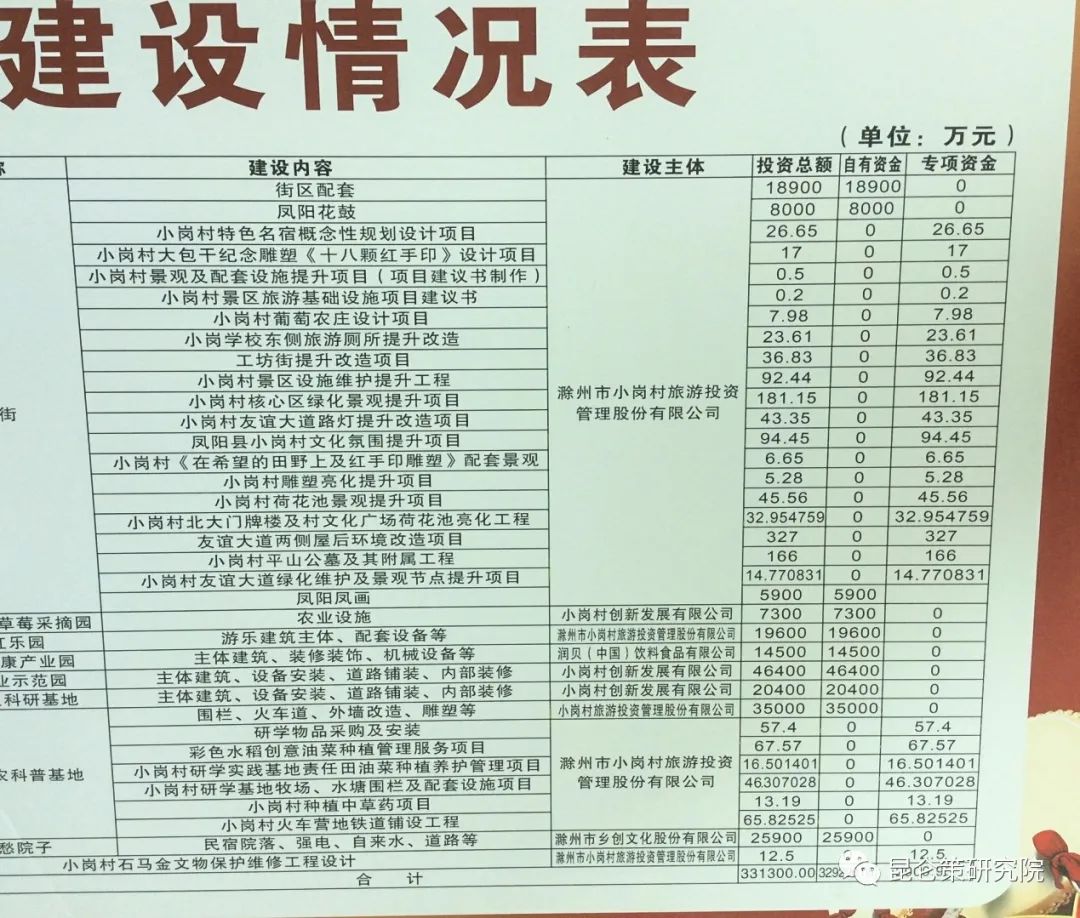 建设情况表
（单位：万元）
称 建设内容 建设主体 投资总额 自有资金 专项资金
街区配套 18900 18900 0
凤阳花鼓 8000 8000 0
小岗村特色名宿概念性规划设计项目 26.65 0 26.65
小岗村大包干纪念雕塑《十八颗红手印》设计项目 17 0 17
小岗村景观及配套设施提升项目（项目建议书制作） 0.5 0 0.5
小岗村景区旅游基础设施项目建议书 0.2 0 0.2
小岗村葡萄农庄设计项目 7.98 0 7.98
小岗学校东侧旅游厕所提升改造 23.61 0 23.61
工坊街提升改造项目 36.83 0 36.83
小岗村景区设施维护提升工程 92.44 0 92.44
小岗村核心区绿化景观提升项目 181.15 0 181.15
街 滁州市小岗村旅游投资
管理股份有限公司
小岗村友谊大道路灯提升改造项目 43.35 0 43.35
凤阳县小岗村文化氛围提升项目 94.45 0 94.45
小岗村《在希望的田野上及红手印雕塑》配套景观 6.65 0 6.65
小岗村雕塑亮化提升项目 5.28 0 5.28
小岗村荷花池景观提升项目 45.56 0 45.56
小岗村北大门牌楼及村文化广场荷花池亮化工程 32.954759 0 32.954759
友谊大道两侧屋后环境改造项目 327 0 327
小岗村平山公墓及其附属工程 166 0 166
小岗村友谊大道绿化维护及景观节点提升项目 14.770831 0 14.770831
凤阳凤画 5900 5900
草莓采摘园 农业设施 小岗村创新发展有限公司 7300 7300 0
乐园 游乐建筑主体、配套设备等 滁州市小岗村旅游投资管理股份有限公司 19600 19600 0
康产业园 主体建筑、装修装饰、机械设备等 润贝（中国）饮料食品有限公司 14500 14500 0
业示范园 主体建筑、设备安装、道路铺装、内部装修 小岗村创新发展有限公司 46400 46400 0
科研基地 主体建筑、设备安装、道路铺装、内部装修 小岗村创新发展有限公司 20400 20400 0
围栏、火车道、外墙改造、雕塑等 小岗村旅游投资管理股份有限公司 35000 35000 0
研学物品采购及安装 57.4 0 57.4
彩色水稻创意油菜种植管理服务项目 67.57 0 67.57
农科普基地 滁州市小岗村旅游投资
管理股份有限公司
小岗村研学实践基地责任田油菜种植养护管理项目 16.501401 0 16.501401
小岗村研学基地牧场、水塘围栏及配套设施项目 46307028 0 46.307028
小岗村种植中草药项目 13.19 0 13.19
小岗村火车营地铁道铺设工程 65.82525 0 65.82525
愁院子 民宿院落、强电、自来水、道路等 滁州市乡创文化股份有限公司 25900 25900 0
小岗村石马金文物保护维修工程设计 滁州市小岗村旅游投资管理股份有限公司 12.5 12.5
合计 331300.00
昆仑策研究院